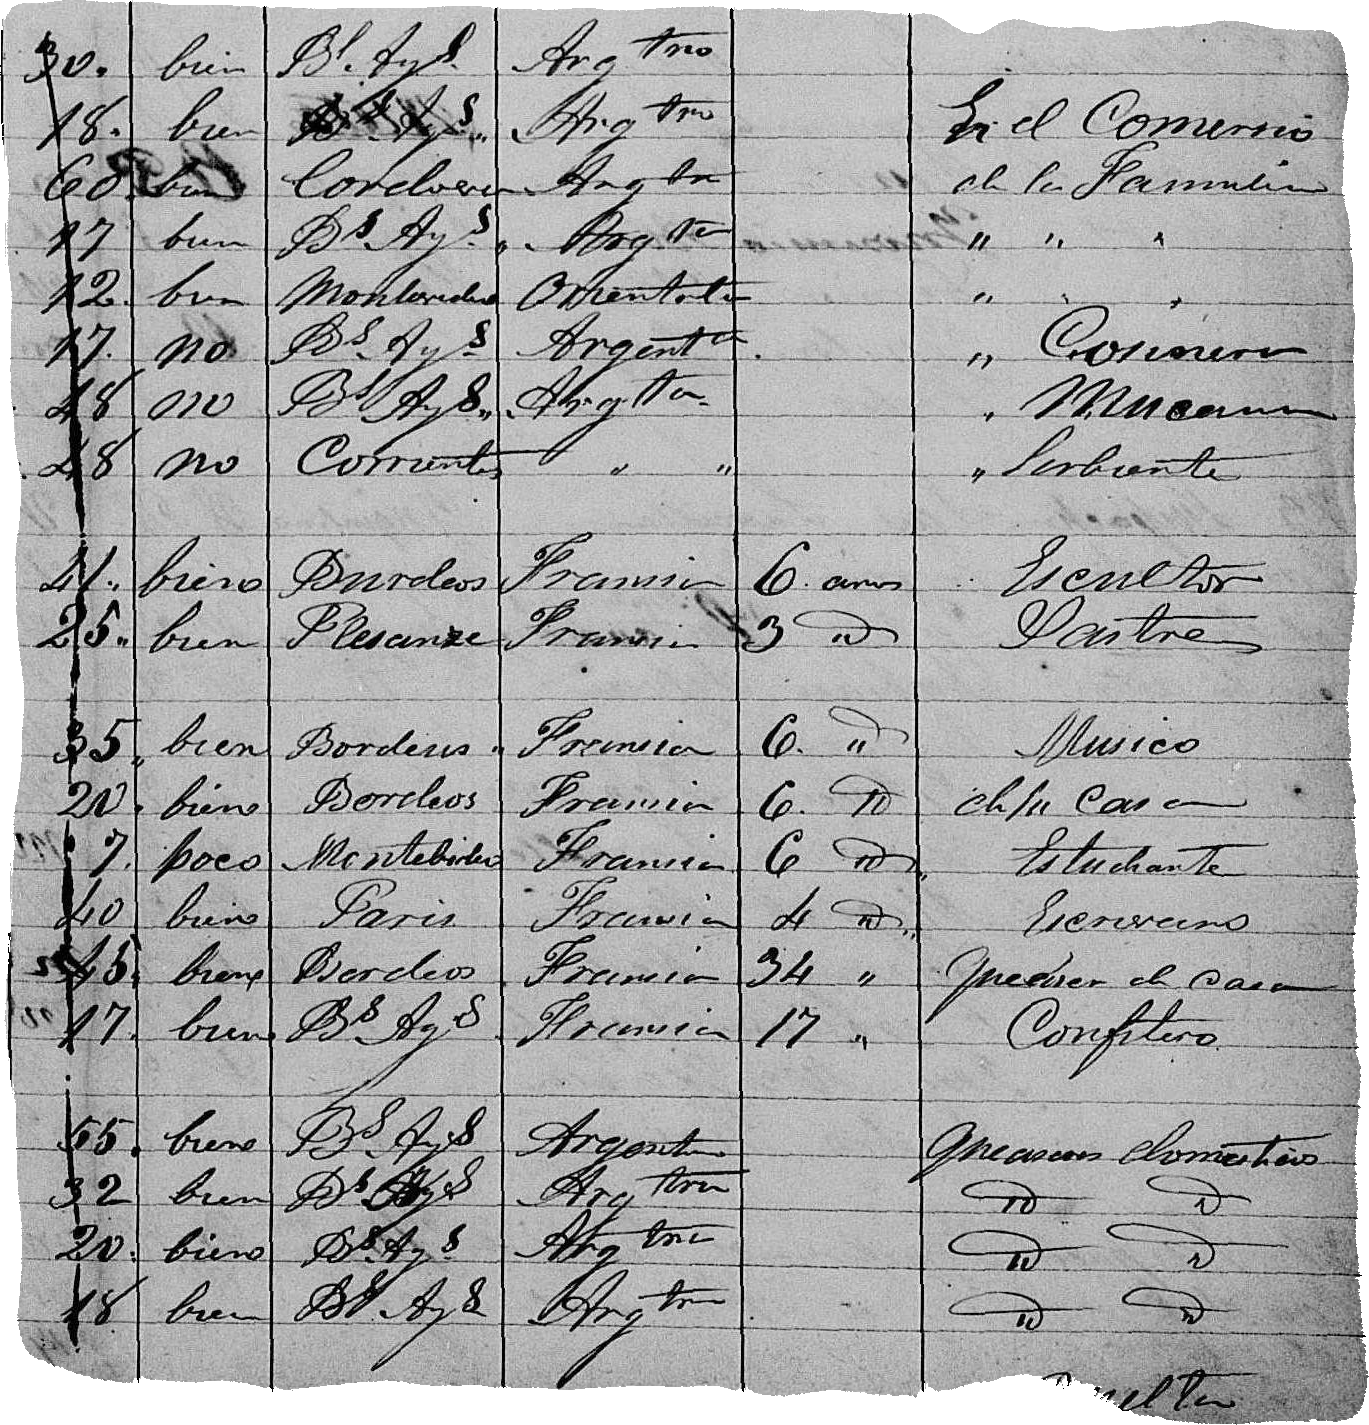 30. bien Bs. Ays. Argtno
18. bien Bs. Ays. Argtno En el Comercio
60. bien Cordovesa Argta de la Familia
17 bien Bs Ays. Argta " " "
12. bien Montevideo Orientala " " "
17. no Bs. Ays Argenta. " Cosinera
48 no Bs Ays.. Argta. " Mucama
48 no Corrientes " " " Sirbiente
41.. biene Burdeos Francia 6. anos Escultor
25.. bien Plesanze Francia 3 " Sastre
35.. bien Bordeus " Francia 6. " Musico
20. biene Bordeos Francia 6. " de su Casa
7. poco Montebideo Francia 6 " Estudiante
40 biene Paris Francia 4 " Escrivano
45. biene Bordeos Francia 34 " de casa
17. biene Bs Ays. Francia 17 " Confitero
55. biene Bs Ays Argenta domesticos
32 bien Bs Ays Argtna " "
20. biene Bs. Ays. Argtna " "
18 bien Bs Ays Argtna " "